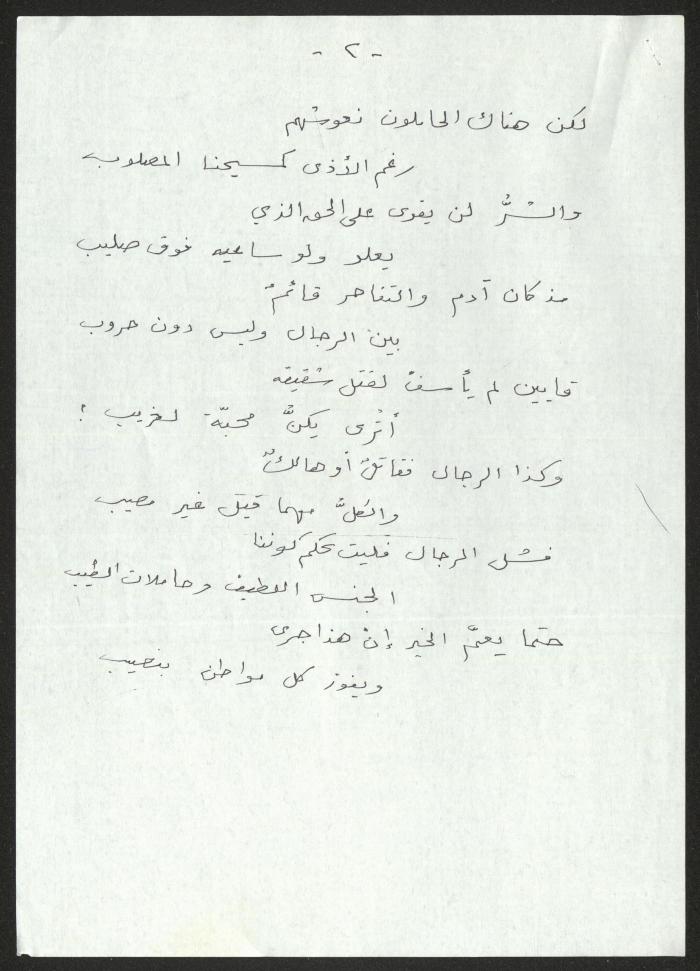 - ٢ -
لكن هناك الحاملون نعوشهم
رغم الأذى كمسيحنا المصلوب
والشرُّ لن يقوى على الحق الذي
يعلو ولو ساعيه فوق صليب
مذ كان آدم والتفاخر قائمٌ
بين الرجال وليس دون حروب
قايين لم يأسفْ لقتل شقيقه
أتُرى يكنُّ محبّة لغريب !
وكذا الرجال فقاتلٌ أو هالكٌ
والكلُّ مهما قيل غير مصيب
فشل الرجال فليت تحكم كوننا
الجنس اللطيف وحاملات الطيب
حتما يعمّ الخير إنْ هذا جرى
ويفوز كل مواطن بنصيب